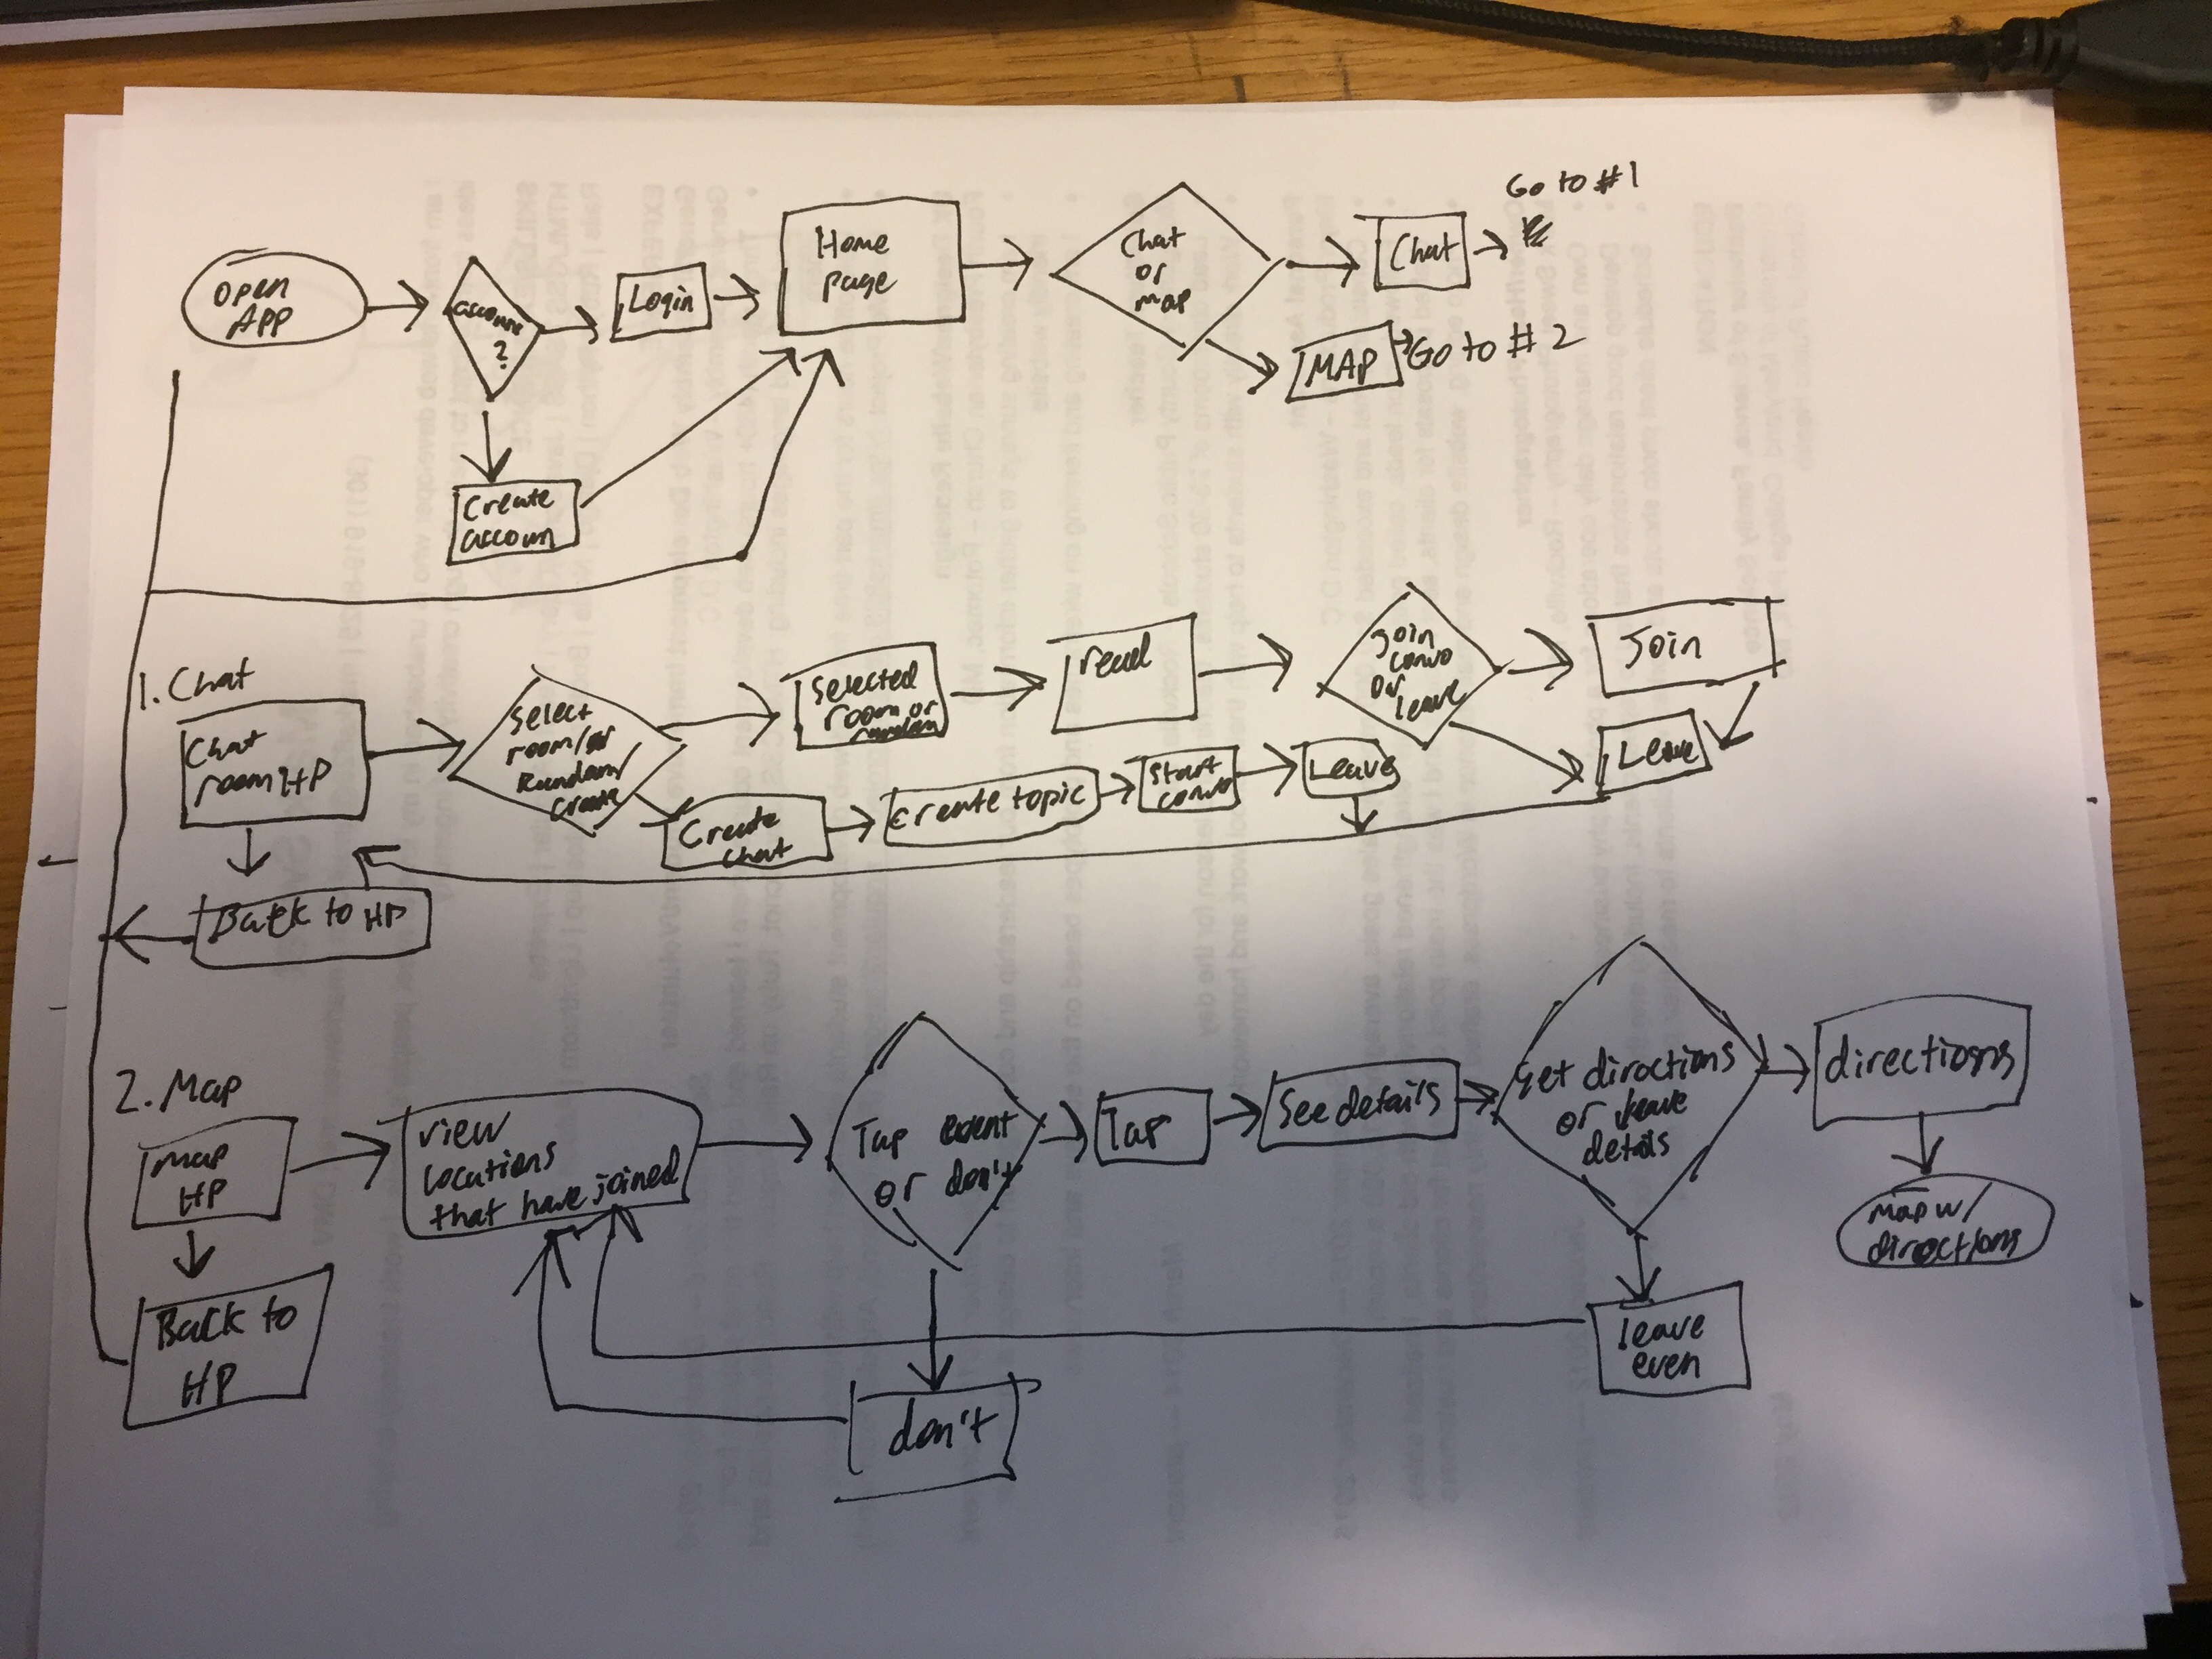 Go to #1
Open
APP
account
?
Login
Home
page
Chat
or
map
Chat
MAP
Go to # 2
Create
accoun
1. Chat
Chat
room HP
Select
room/or
Random/
Create
Selected
room or
random
read
Join
convo
or
leave
Join
Leave
Create
Chat
Create topic
Start
convo
Leave
Back to HP
2. Map
Map
HP
view
locations
that have joined
Tap event
or don't
Tap
See details
get directions
or leave
details
directions
Map w/
directions
Back to
HP
don't
leave
even